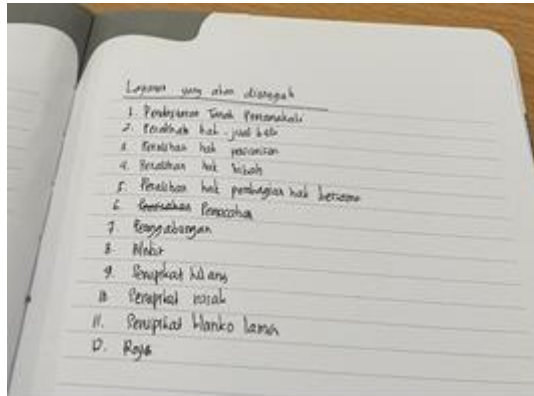 Layanan yang akan diunggah
1. Pendaftaran Tanah Pertamakali
2. Peralihan hak jual beli
3. Peralihan hak pewarisan
4. Peralihan hak hibah
5. Peralihan hak pembagian hak bersama
6. Pemecahan
7. Penggabungan
8. Blokir
9. Sertipikat hilang
10. Sertipikat rusak
11. Sertipikat blanko lama
12. Roya